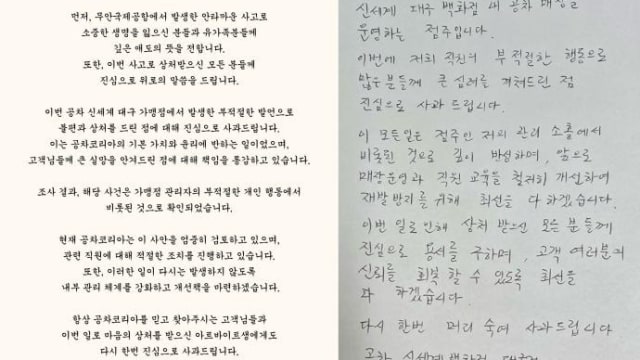 먼저, 무안국제공항에서 발생한 안타까운 사고로
소중한 생명을 잃으신 분들과 유가족분들께
깊은 애도의 뜻을 전합니다.
또한, 이번 사고로 상처받으신 모든 분들께
진심으로 위로의 말씀을 드립니다.
이번 공차 신세계 대구 가맹점에서 발생한 부적절한 발언으로
불편과 상처를 드린 점에 대해 진심으로 사과드립니다.
이는 공차코리아의 기본 가치와 윤리에 반하는 일이었으며,
고객님들께 큰 실망을 안겨드린 점에 대해 책임을 통감하고 있습니다.
조사 결과, 해당 사건은 가맹점 관리자의 부적절한 개인 행동에서
비롯된 것으로 확인되었습니다.
현재 공차코리아는 이 사안을 엄중히 검토하고 있으며,
관련 직원에 대해 적절한 조치를 진행하고 있습니다.
또한, 이러한 일이 다시는 발생하지 않도록
내부 관리 체계를 강화하고 개선책을 마련하겠습니다.
항상 공차코리아를 믿고 찾아주시는 고객님들과
이번 일로 마음의 상처를 받으신 아르바이트생에게도
다시 한번 진심으로 사과드립니다.
신세계 대구 백화점 내 공차 매장을
운영하는 점주입니다.
이번에 저희 직원의 부적절한 행동으로
많은 분들께 큰 심려를 끼쳐드린 점
진심으로 사과 드립니다.
이 모든일은 점주인 저의 관리 소홀에서
비롯된 것으로 깊이 반성하며, 앞으로
매장운영과 직원 교육을 철저히 개선하여
재발 방지를 위해 최선을 다 하겠습니다.
이번 일로 인해 상처 받으신 모든 분들께
진심으로 용서를 구하며, 고객 여러분의
신뢰를 회복 할 수 있도록 최선을
다 하겠습니다.
다시 한번 머리 숙여 사과드립니다
공차 신세계백화점 대구점